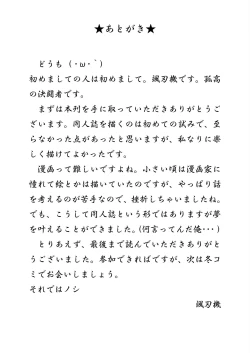 ★あとがき★
どうも（・ω・｀）
初めましての人は初めまして。颯刃機です。孤高
の決闘者です。
まずは本列を手に取っていただきありがとうご
ざいます。同人誌を描くのは初めての試みで、至
らなかった点があったと思いますが、私なりに楽
しく描けてよかったです。
漫画って難しいですよね。小さい頃は漫画家に
憧れて絵とかは描いていたのですが、やっぱり話
を考えるのが苦手なので、挫折しちゃいましたね。
でも、こうして同人誌という形ではありますが夢
を叶えることができました。(何言ってんだ俺・・・)
とりあえず、最後まで読んでいただきありがと
うございました。参加できればですが、次は冬コ
ミでお会いしましょう。
それではノシ
颯刃機